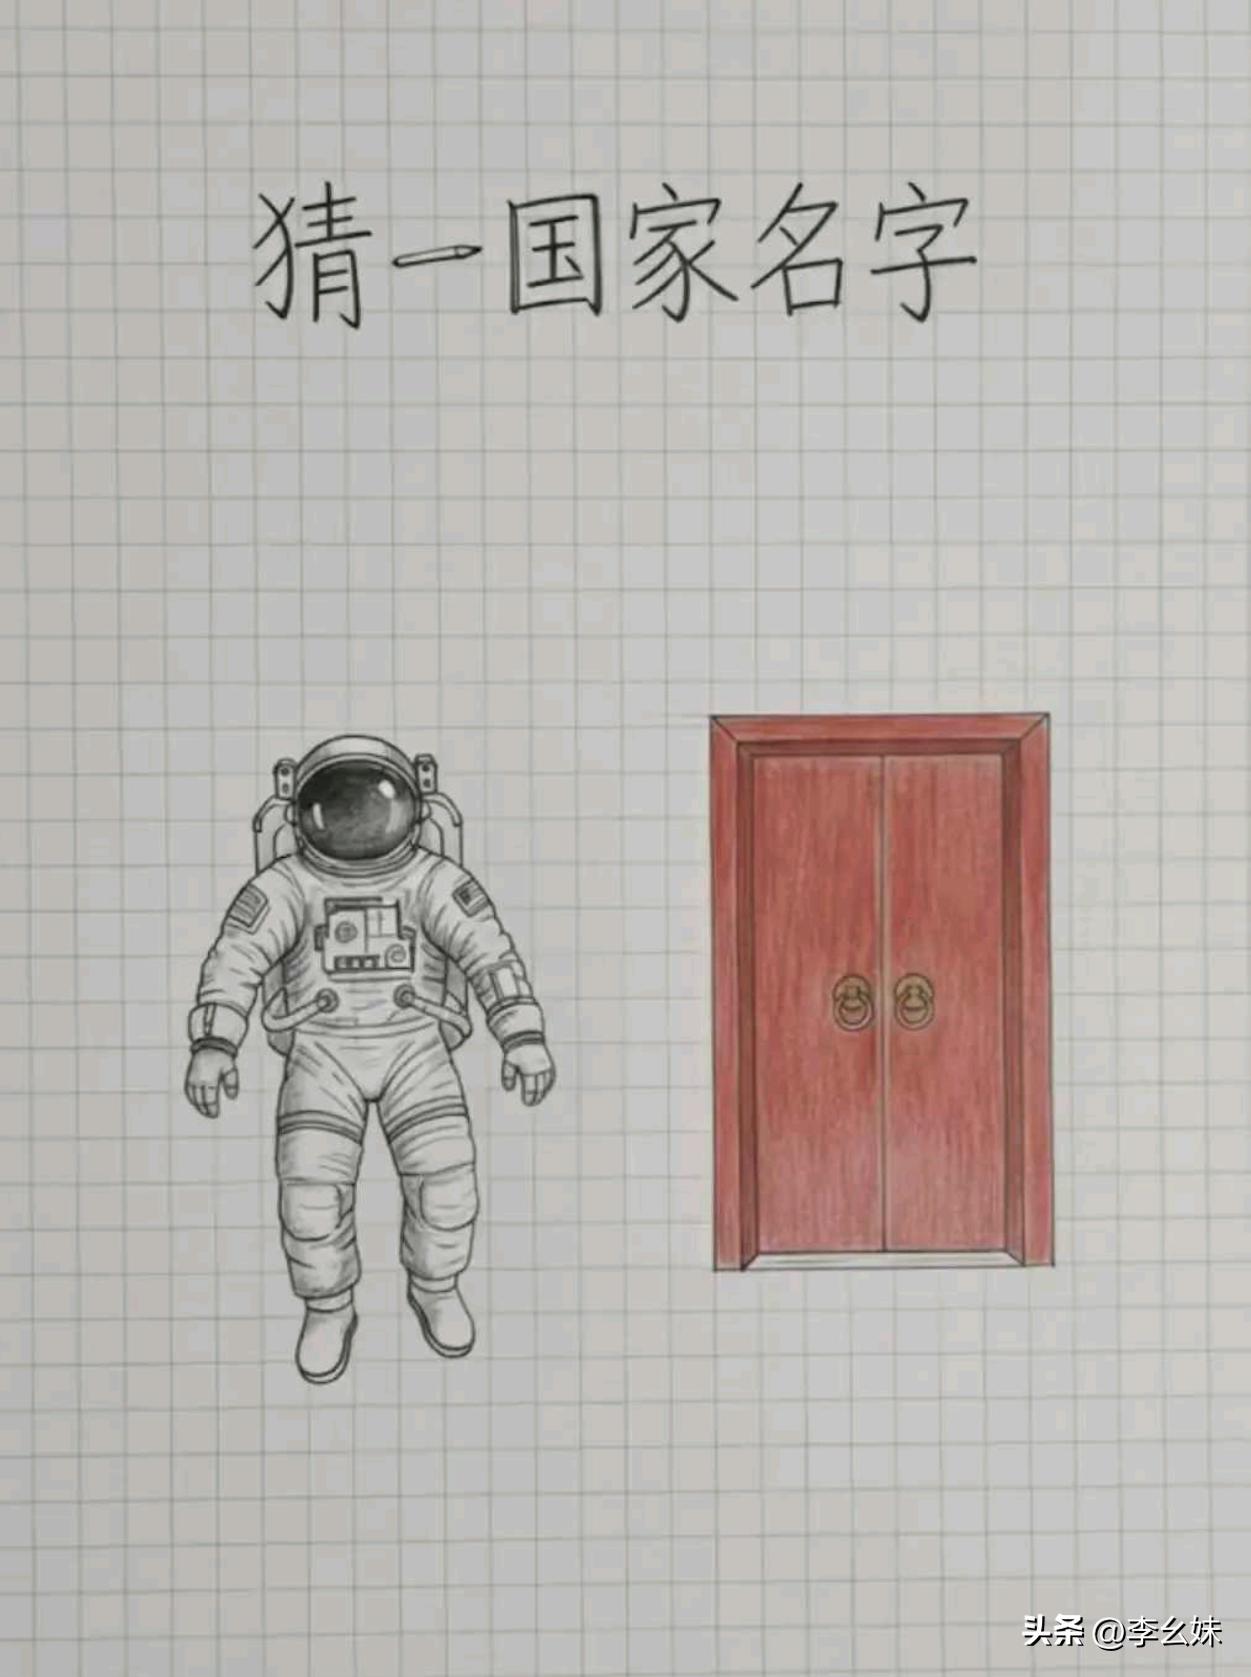 猜一国家名字
头条 @李幺妹